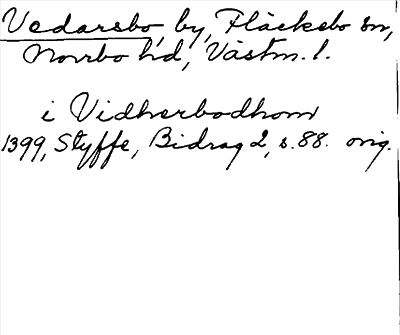 Vedarsbo, by, Fläckebo sn,
Norrbo hd, Västm. l.
i Vidherbodhom
1399, Styffe, Bidrag 2, s. 88. orig.